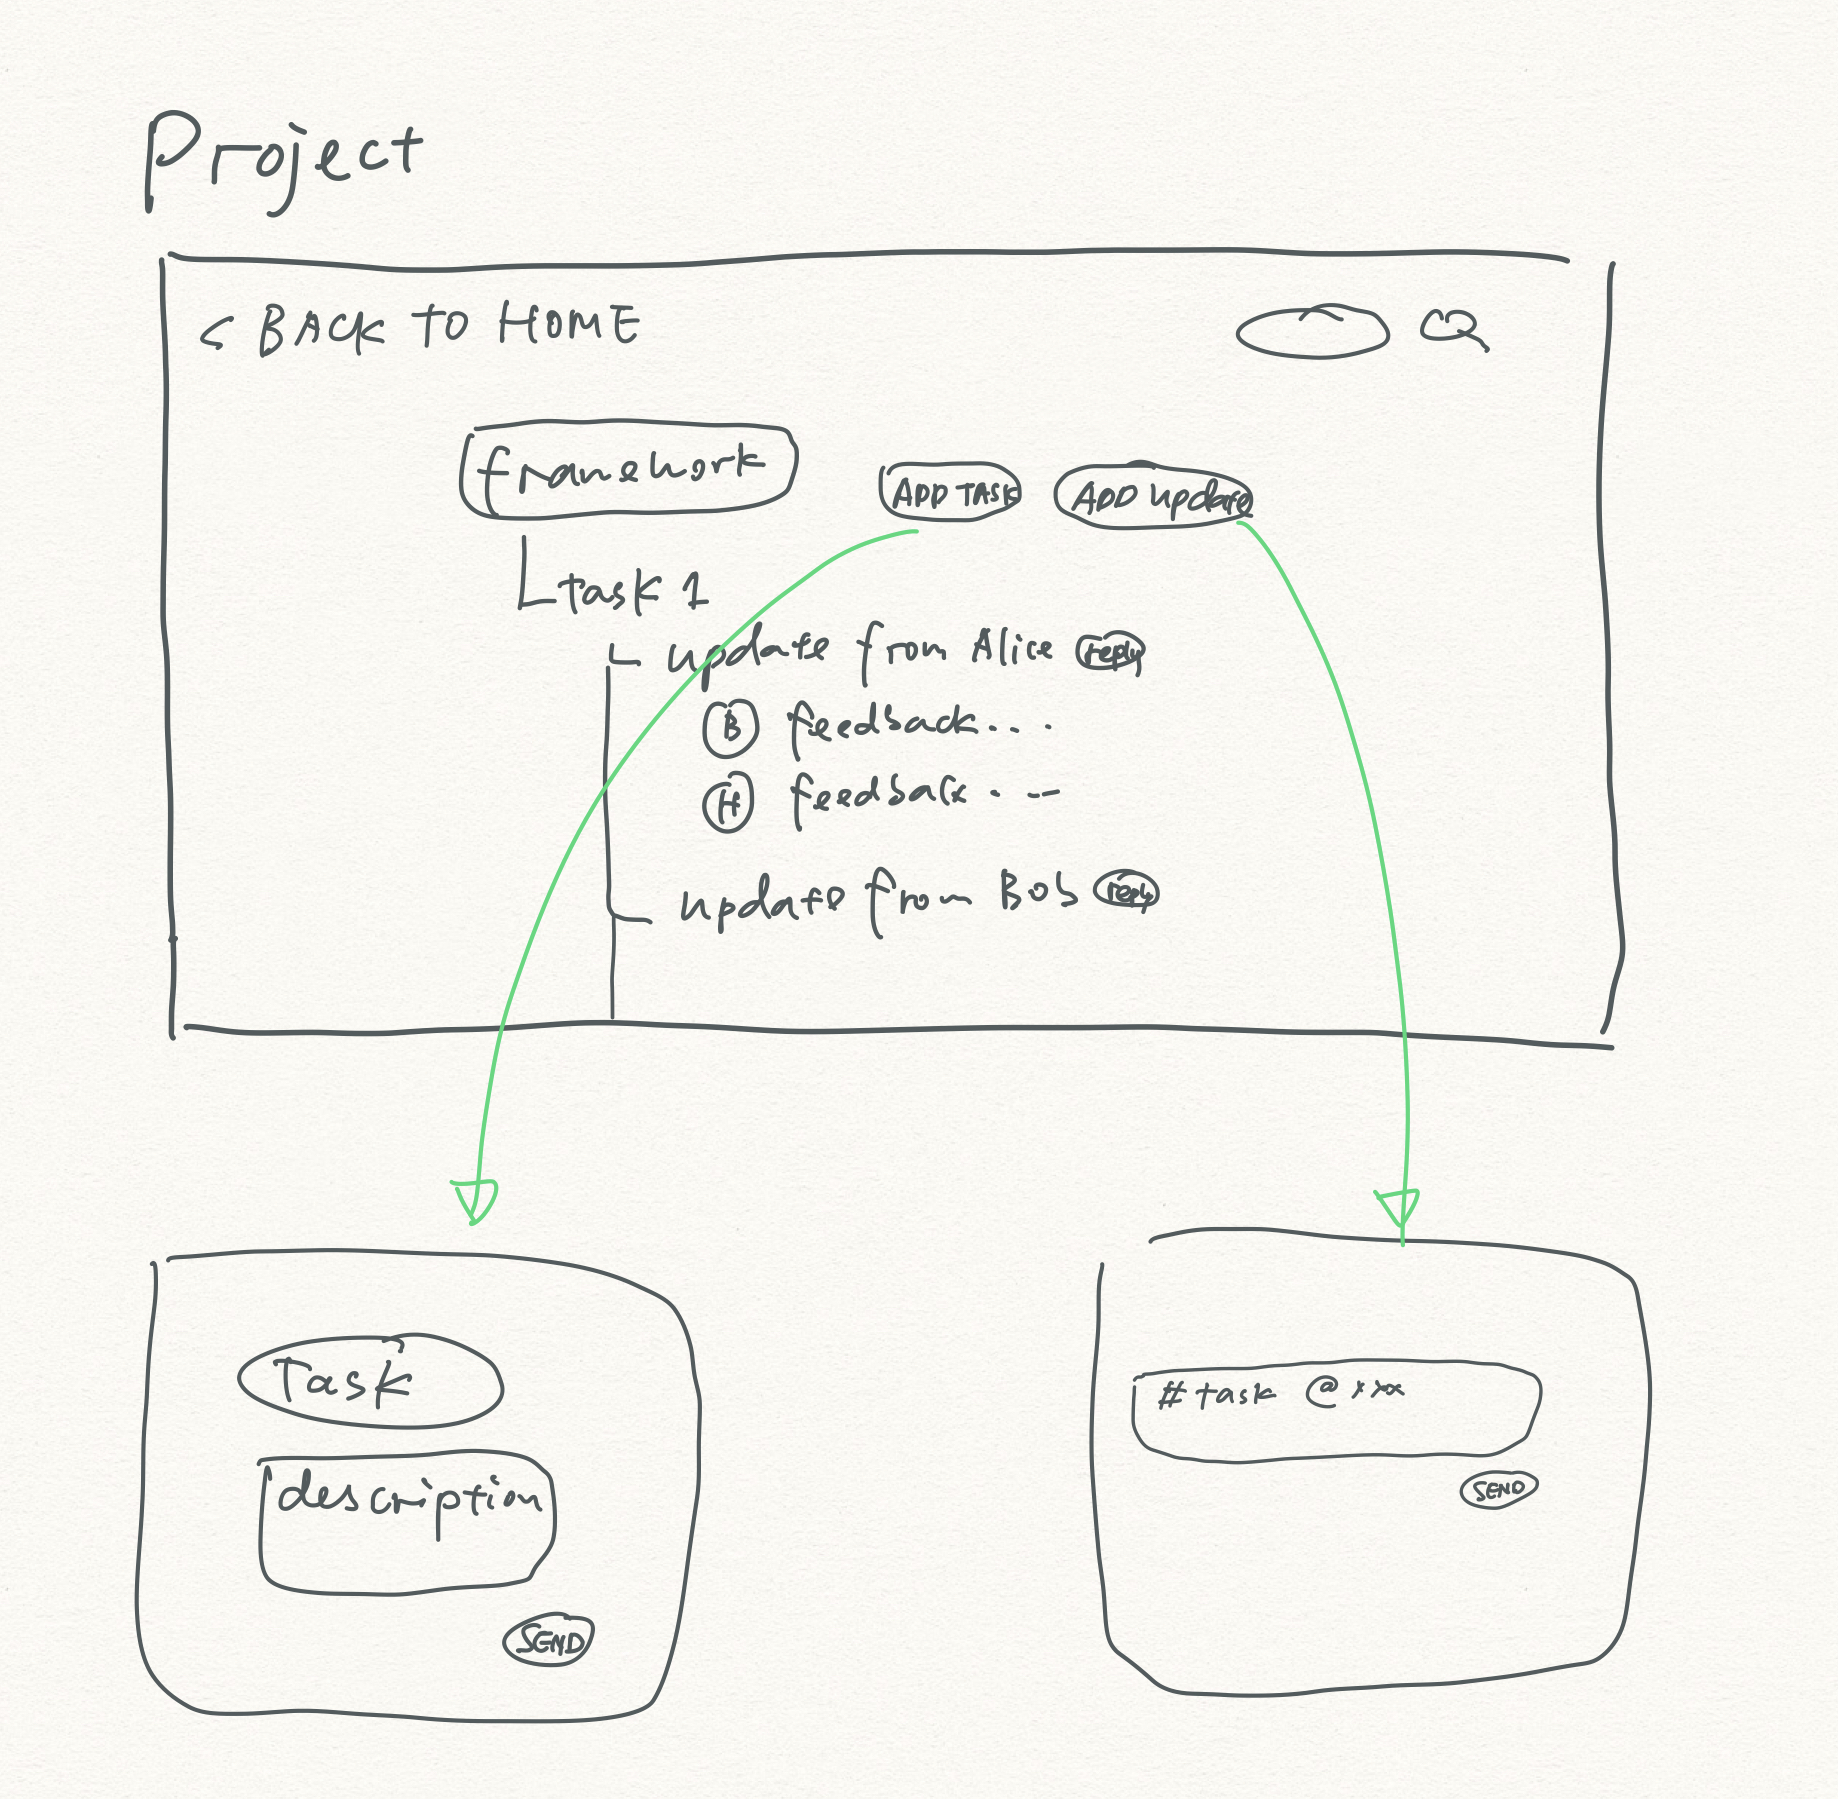 Project
< BACK TO HOME
framework
ADD TASK
ADD update
task 1
update from Alice reply
B feedback...
H feedback...
update from Bob reply
Task
description
SEND
#task @xxx
SEND